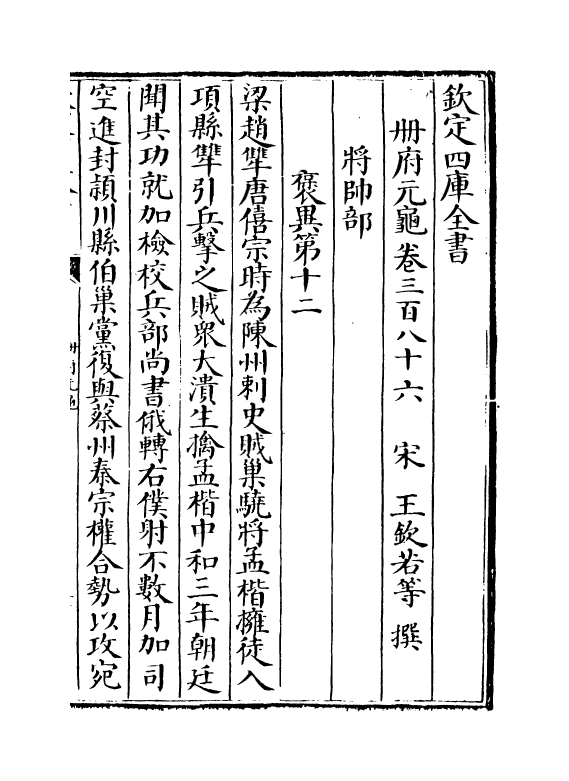 欽定四庫全書
冊府元龜卷三百八十六 宋 王欽若等 撰
將帥部
褒異第十二
梁趙犨唐僖宗時為陳州刺史賊巢驍將孟楷擁徒入
項縣犨引兵擊之賊衆大潰生擒孟楷中和三年朝廷
聞其功就加檢校兵部尚書俄轉右僕射不數月加司
空進封潁川縣伯巢黨復與蔡州秦宗權合勢以攻宛